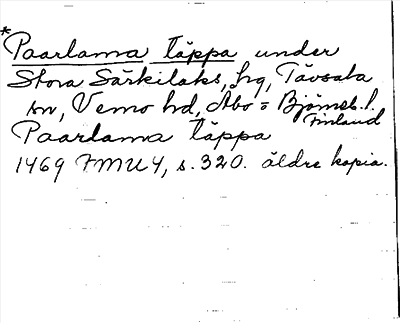 *Paarlama täppa under
Stora Särkilaks, hg, Tövsala
sn, Vemo hd, Åbo = Björneb. l.
Finland
Paarlama täppa
1469 FMU 4, s. 320. äldre kopia.